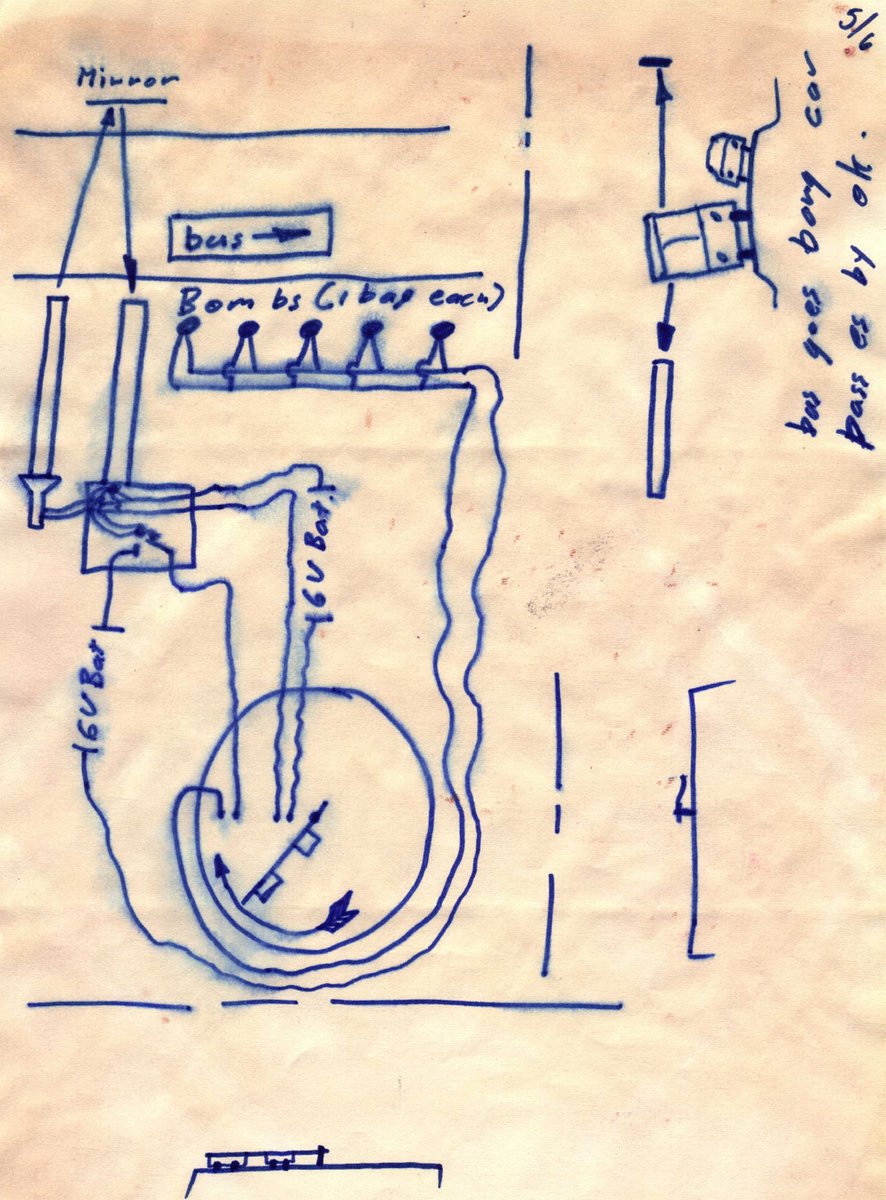 5/6
Mirror
bus
Bombs (1 bag each)
6V Bat.
6V Bat
bus goes bang car
passes by ok.